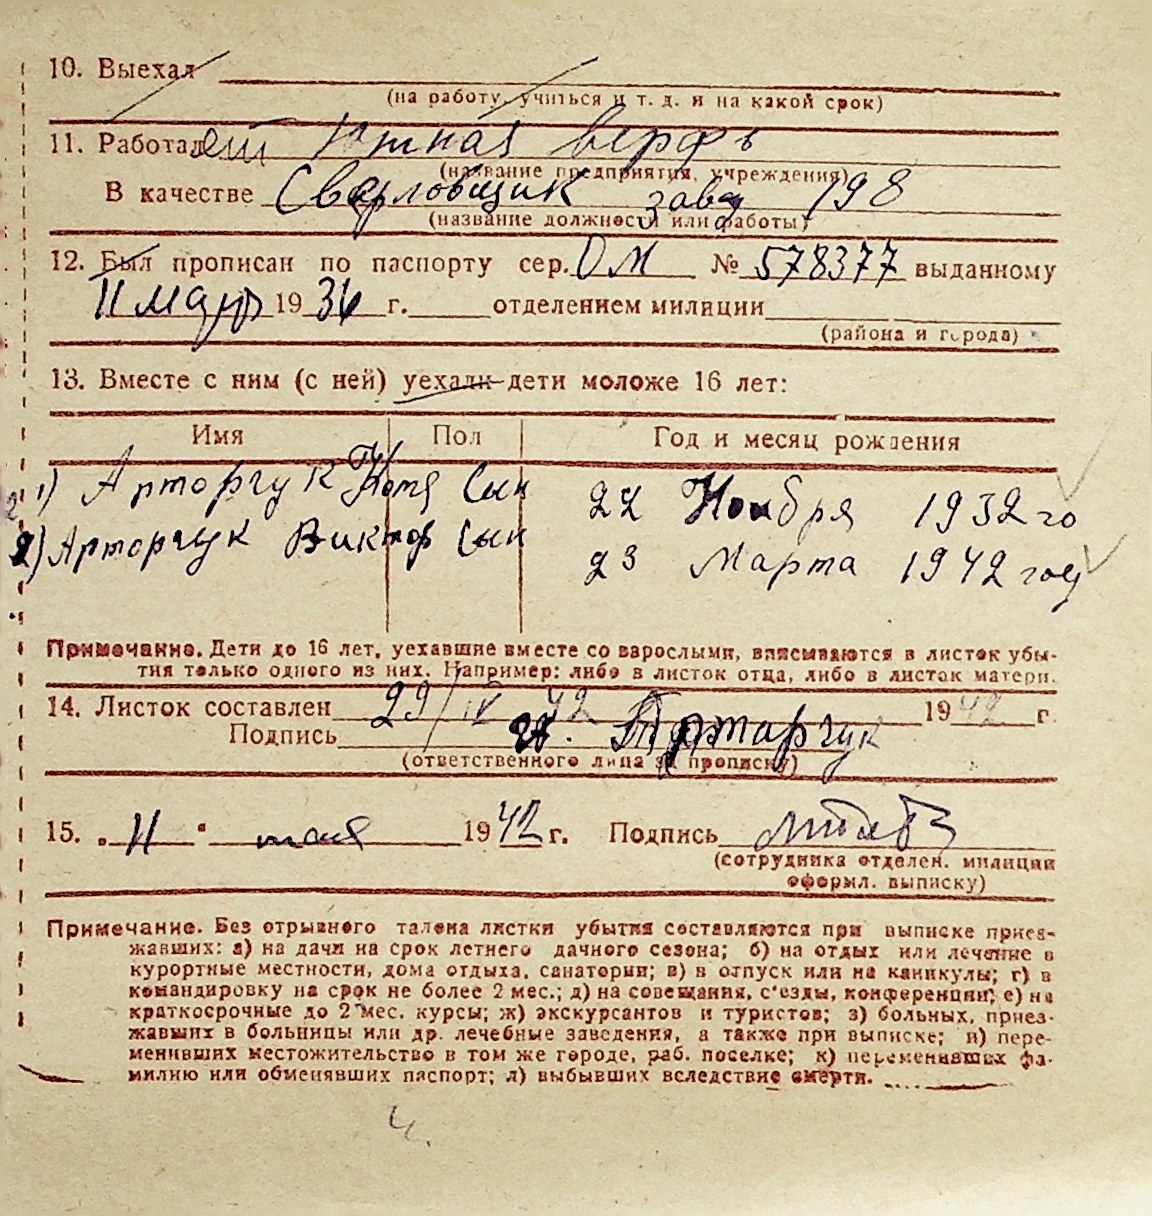 10. Выехал
(на работу, учиться и т. д. и на какой срок)
11. Работал Южная верфь
(название предприятия, учреждения)
В качестве Сверловщик завд 198
(название должности или работы)
12. Был прописан по паспорту сер. ОМ № 578377 выданному
11 марта 1936 г. отделением милиции
(района и города)
13. Вместе с ним (с ней) уехали дети моложе 16 лет:
Имя Пол Год и месяц рождения
1) Арторчук Котя Сын 22 Ноября 1932 го
2) Арторчук Виктор Сын 23 Марта 1942 году
Примечание. Дети до 16 лет, уехавшие вместе со взрослыми, вписываются в листок убы-
тия только одного из них. Например: либо в листок отца, либо в листок матери.
14. Листок составлен 29/IV 42 1942 г.
Подпись Артарчук
(ответственного лица за прописку)
15. „11“ мая 1942 г. Подпись
(сотрудника отделен. милиции
оформл. выписку)
Примечание. Без отрывного талона листки убытия составляются при выписке приез-
жавших: а) на дачи на срок летнего дачного сезона; б) на отдых или лечение в
курортные местности, дома отдыха, санатории; в) в отпуск или на каникулы; г) в
командировку на срок не более 2 мес.; д) на совещания, с'езды, конференции; е) на
краткосрочные до 2 мес. курсы; ж) экскурсантов и туристов; з) больных, приез-
жавших в больницы или др. лечебные заведения, а также при выписке; и) пере-
менивших местожительство в том же городе, раб. поселке; к) переменивших фа-
милию или обменявших паспорт; л) выбывших вследствие смерти.